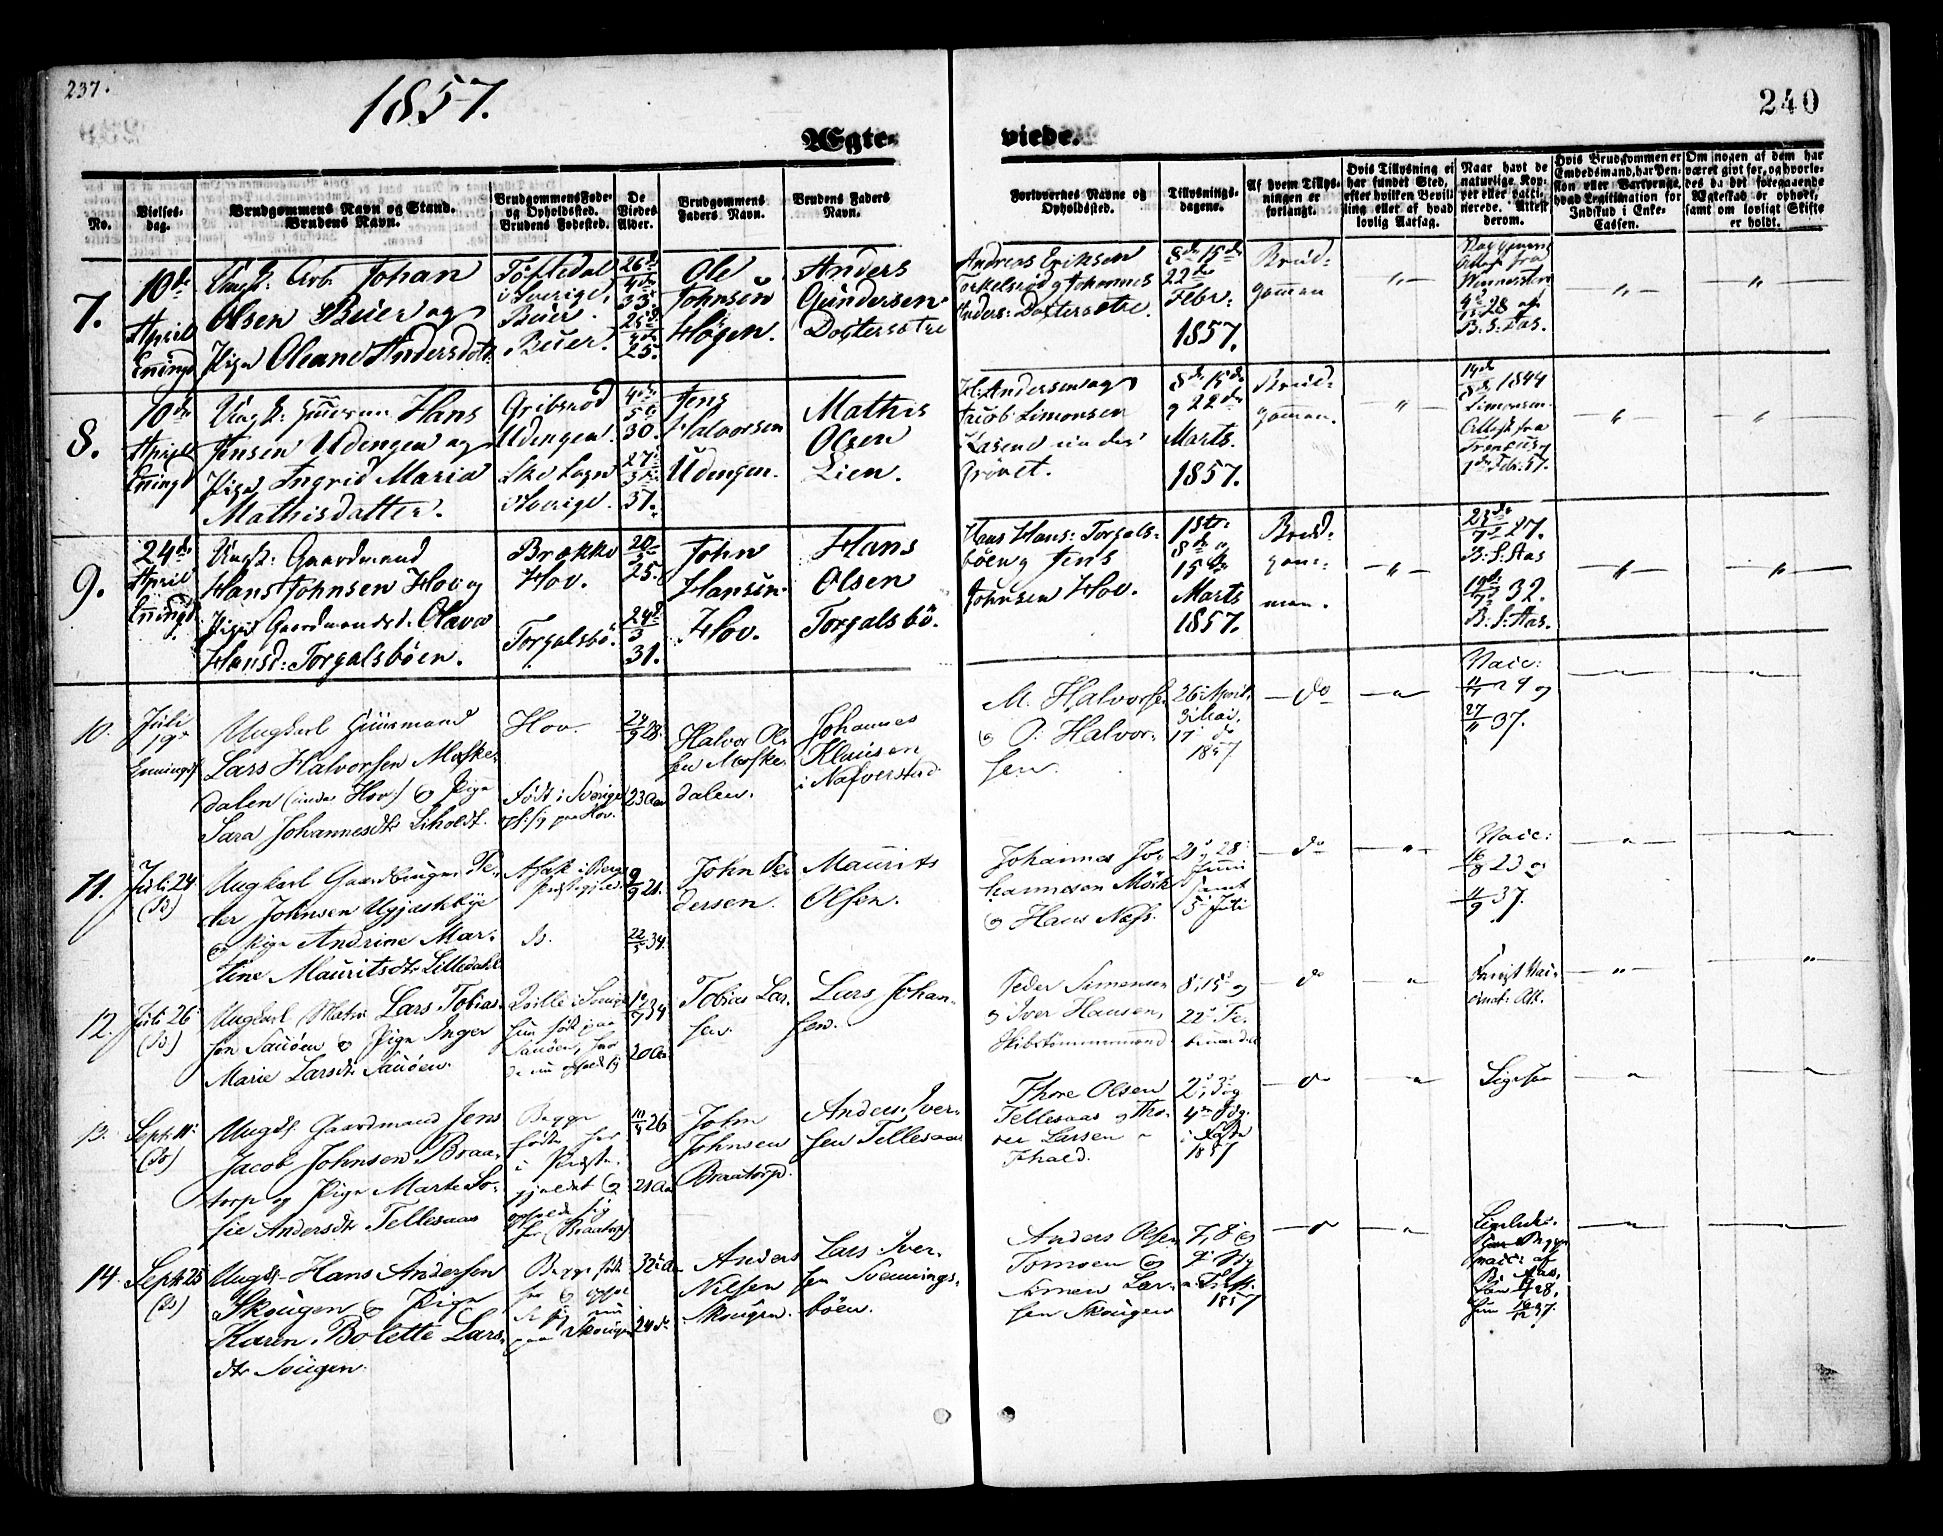 237.
1857.
240
Ægte-
viede.
No.
Vielses-
dag.
Brudgommens Navn og Stand.
Brudens Navn.
Brudgommens Føde-
og Opholdssted.
Brudens Fødested.
De
Viedes
Alder.
Brudgommens
Faders Navn.
Brudens Faders
Navn.
Forlovernes Navne og
Opholdssted.
Tillysnings-
dagene.
Af hvem Tillys-
ningen er
forlangt.
Hvis Tillysning ei
har fundet Sted,
efter hvilken Bevil-
ling eller af hvad
lovlig Aarsag.
Naar havt de
naturlige Kop-
per eller vacci-
nerede. Attest
derom.
Hvis Brudgommen er
Embedsmand, har Pen-
sion eller Vartpenge,
hvad Legitimation for
Indskud i Enke-
Cassen.
Om nogen af dem har
været givt før, og hvorle-
des da det foregaaende
Ægteskab er ophørt,
samt om lovligt Skifte
er holdt.
7.
10de
April
Enningd
Ungk: Arb. Johan
Olsen Buer og
Pige Oleane Andersdatt.
Töftedal
i Sverige,
Buer.
Buer.
25.
Ole
Johnsen
Högen.
Anders
Gundersen
Dostersetre
Andreas Eriksen
Torkelsröd og Johannes
Anders: Dostersetre.
8de 15de
22de
Febr:
1857.
Brud-
gomman
B: S: Aas.
8.
10de
April
Enningd
Ungk: Huusm Hans
Jensen Udengen og
Pige Ingrid Maria
Mathisdatter.
Gribsröd
Udengen.
Ske Sogn
i Sverige.
30.
37.
Jens
Halvorsen
Udengen.
Mathis
Olsen
Lien.
H: Andersen og
Jacob Simonsen
8de 15de
og 22de
Marts.
1857.
Brud-
gomman.
1844
Simonsen
Attest fra
9.
24de
April
Enningd
Ungk: Gaardmand
Hans Johnsen Hov og
Pige Gaardmandsd: Olava
Hansd: Torgalsböen.
Brække
Hov.
Torgalsbö.
25.
24
31.
John
Hansen
Hov.
Hans
Olsen
Torgalsbö.
Hans Hans: Torgals-
böen og Jens
Johnsen Hov.
1ste
8de og
15de
Marts
1857.
Brud-
gom-
man.
27.
B: S: Aas
32.
B: S: Aas.
10.
Juli
19de
Enningd
Ungkarl Huusmand
Lars Halvorsen Moske-
dalen (under Hov) og Pige
Sara Johannesdtr Liholdt.
Hov.
Født i Sverige
oph: sig paa Hov.
28.
23 Aar
Halvor Ol-
sen Moske-
dalen.
Johannes
Klausen
i Nafverstad
M. Halvorsen
og O. Halvor-
sen.
26 April,
3 Mai,
17 do
1857
do
Vacc:
29 og
37.
11.
Juli 24
(B)
Ungkarl Gaardbruger Pe-
der Johnsen Ugjestebye
og Pige Andrine Mar-
tine Mauritsdtr Lilledahl
B.
21.
34.
John Pe-
dersen.
Maurits
Olsen.
Johannes Jo-
hannesen Mörk
og Hans Næs.
21 og 28
Juni
samt
5 Juli
do
Vacc:
23 og
37.
12.
Juli 26
(B)
Ungkarl Matr. Lars Tobias-
sen Sauöen og Pige Inger
Marie Larsdtr Sauöen.
34
20 Aa
Tobias Lar-
sen.
Lars Johan-
sen.
Peder Simensen
og Iver Hansen,
Skibstömmermænd
8, 15 og
22 Fe-
bruar
do
13.
Sept. 11
(B)
Ungk. Gaardmand Jens
Jacob Johnsen Braa-
torp og Pige Marte So-
fie Andersdtr Tellesaas
Begge
födte her
i Præste-
gjeldet og
opholde sig
her (Braatorp)
26
21 Aa
John
Johnsen
Braatorp.
Anders Iver-
sen Tellesaas
Thore Olsen
Tellesaas og Tho-
res Larsen
Fhald.
2, 3 og
4de Sdg.
1857
do
14.
Sept. 25
(B)
Ungk. Hans Andersen
Skougen og Pige
Karen Bolette Lars-
dtr Sougen.
Begge født
her og ophol-
de sig nu
paa Skougen
32 Aa
24 do
Anders
Nilsen
Skougen.
Lars Iver-
sen Svennings-
böen.
Anders Olsen
Tomoen og
Simen Lar-
sen Skougen
7, 8 og
1857